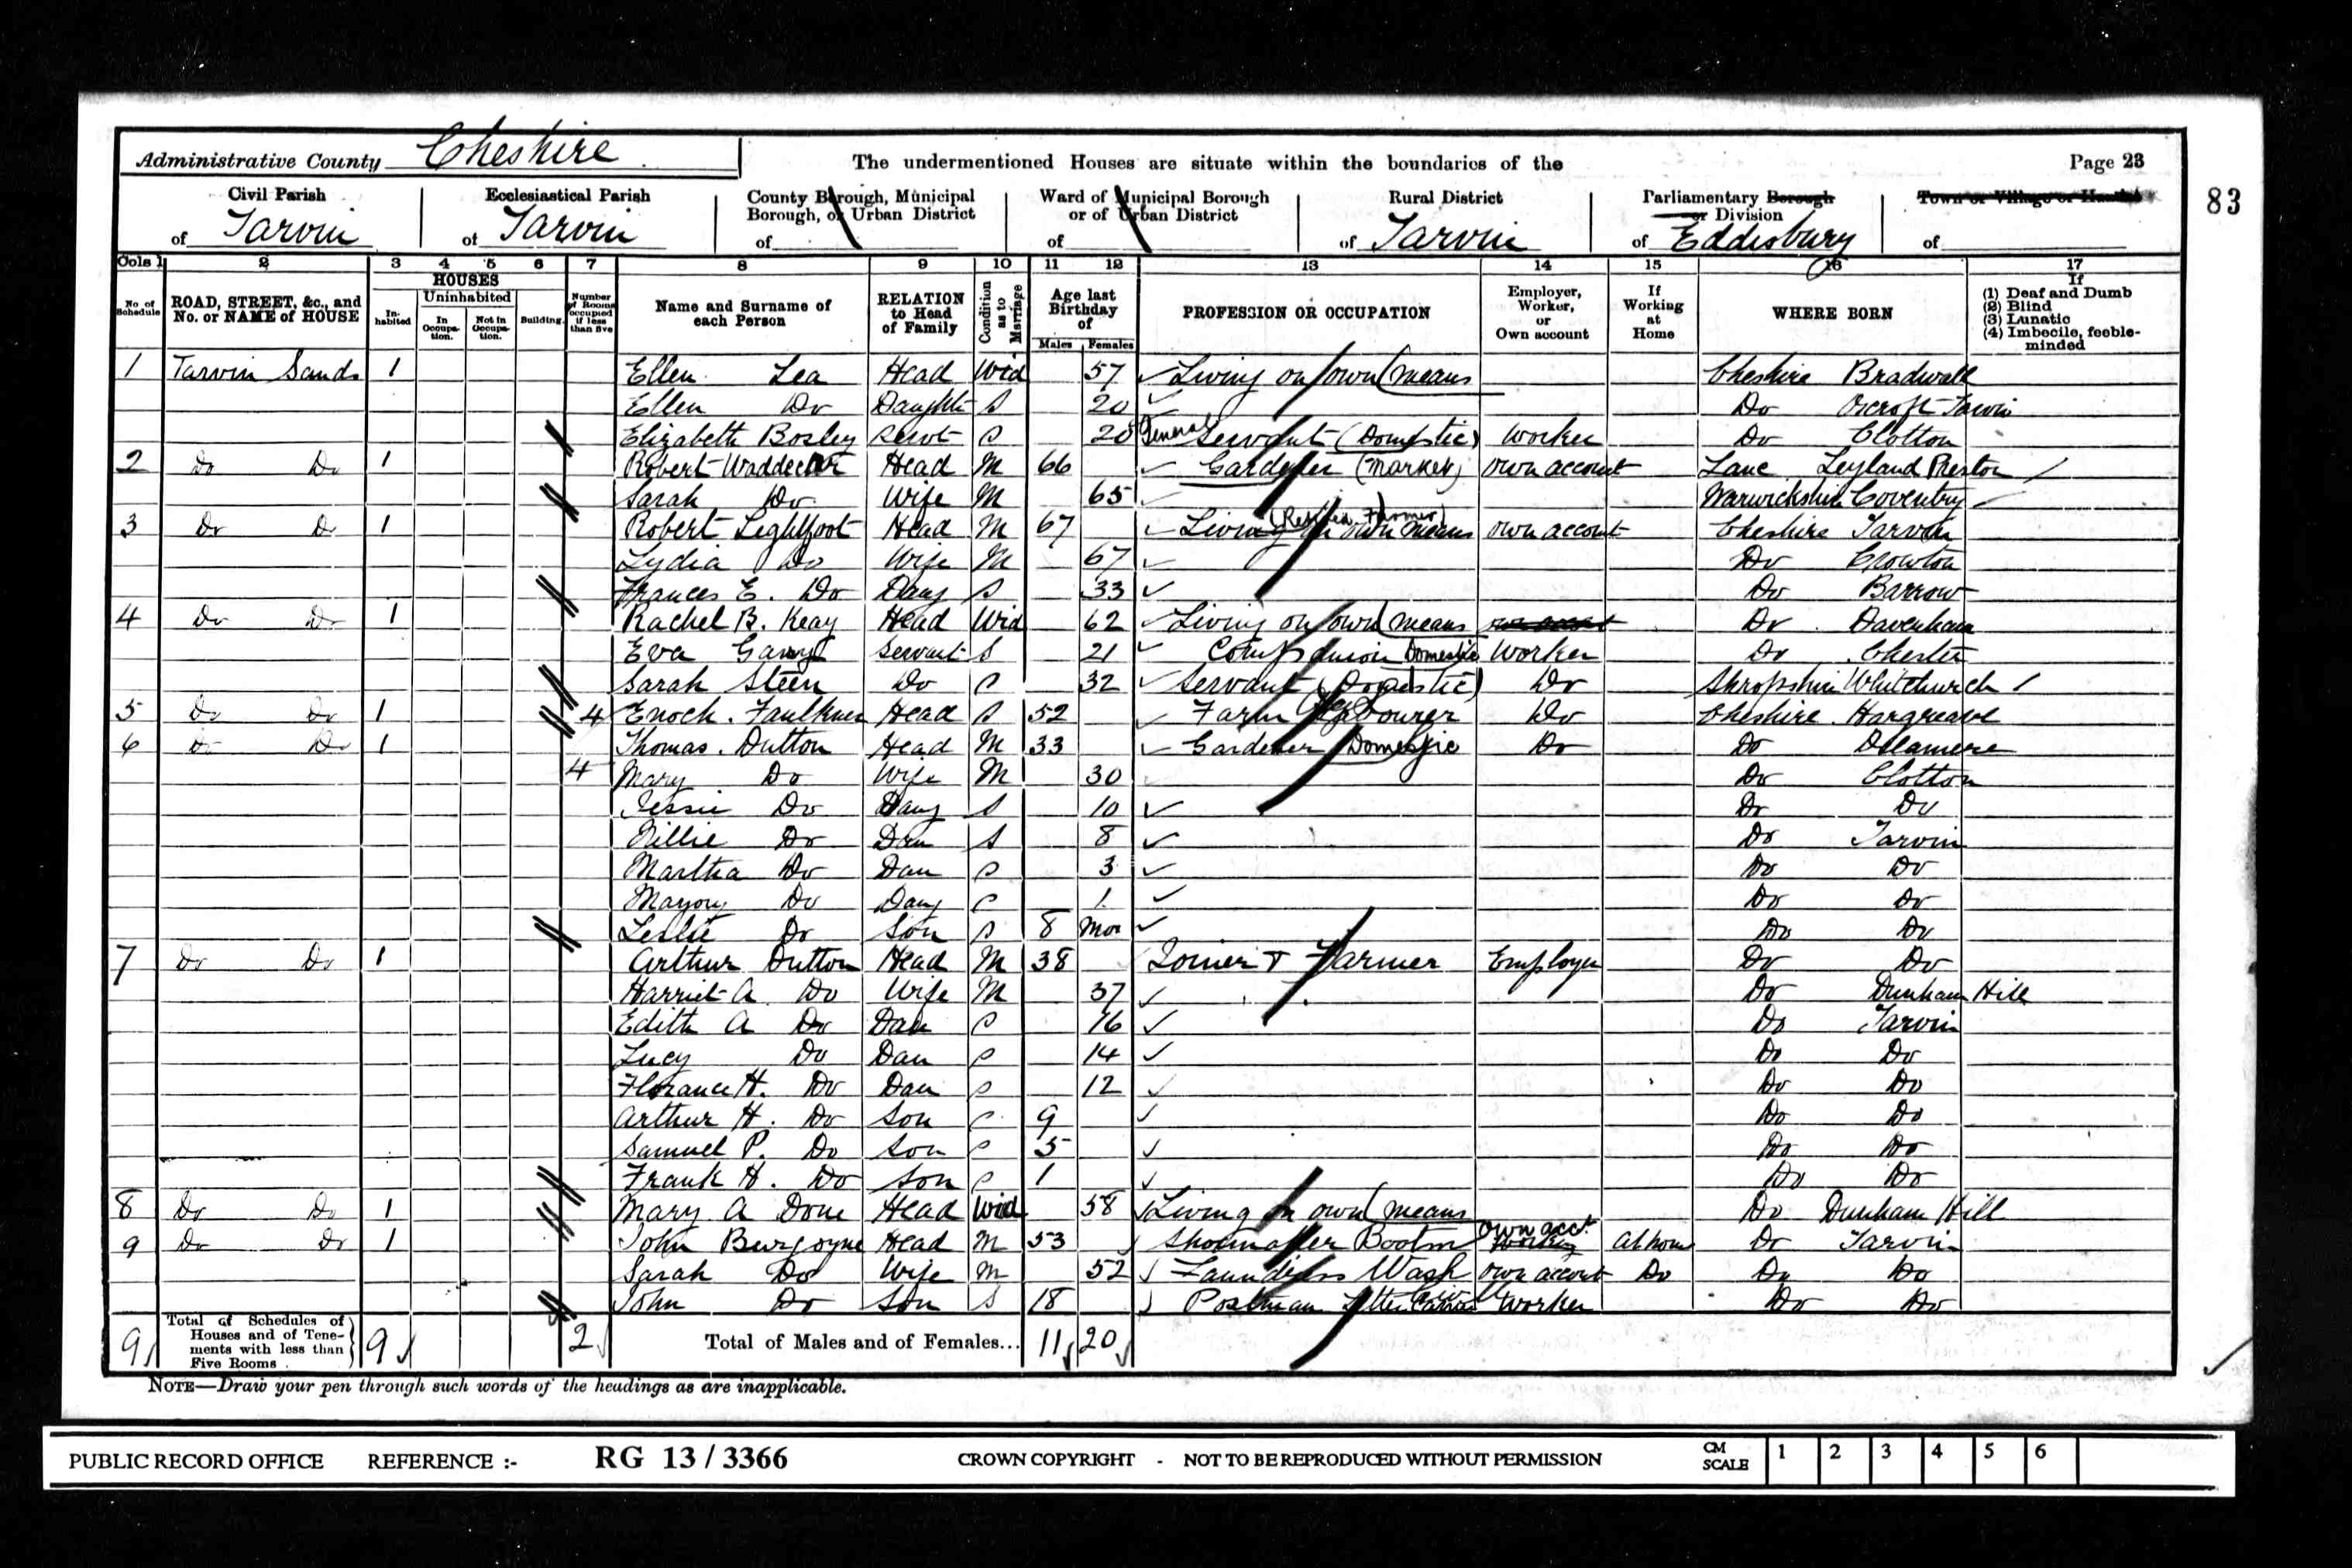 Administrative County Cheshire
The undermentioned Houses are situate within the boundaries of the
Page 23
83
Civil Parish of Tarvin
Ecclesiastical Parish of Tarvin
County Borough, Municipal Borough, or Urban District of
Ward of Municipal Borough or of Urban District of
Rural District of Tarvin
Parliamentary Borough or Division of Eddisbury
Town or Village or Hamlet of
Cols 1 2 3 4 5 6 7 8 9 10 11 12 13 14 15 16 17
No. of Schedule
ROAD, STREET, &c., and No. or NAME of HOUSE
HOUSES
In-habited
Uninhabited
In Occupa-tion.
Not in Occupa-tion.
Building.
Number of Rooms occupied if less than five
Name and Surname of each Person
RELATION to Head of Family
Condition as to Marriage
Age last Birthday of
Males Females
PROFESSION OR OCCUPATION
Employer, Worker, or Own account
If Working at Home
WHERE BORN
If
(1) Deaf and Dumb
(2) Blind
(3) Lunatic
(4) Imbecile, feeble-minded
1 Tarvin Sands 1 Ellen Lea Head Wid 57 Living on own means Cheshire Bradwall
Ellen Do Daughtr S 20 Do Oscroft Tarvin
Elizabeth Bosley Servt S 20 General Servant (Domestic) Worker Do Clotton
2 Do Do 1 Robert Head M 66 Gardener (Market) own account Lanc Leyland Preston
Sarah Do Wife M 65 Warwickshire Coventry
3 Do Do 1 Robert Lightfoot Head M 67 Living on own means (Retired Farmer) own account Cheshire Tarvin
Lydia Do Wife M 67 Do Crowton
Frances E. Do Daug S 33 Do Barrow
4 Do Do 1 Rachel B. Keay Head Wid 62 Living on own means own account Do Davenham
Eva Servant S 21 Companion Domestic Worker Do Chester
Sarah Steen Do S 32 Servant (Domestic) Do Shropshire Whitchurch
5 Do Do 1 4 Enoch Faulkner Head S 52 Farm Labourer Do Cheshire Hargreave
6 Do Do 1 Thomas Dutton Head M 33 Gardener Domestic Do Do Delamere
4 Mary Do Wife M 30 Do Clotton
Jessie Do Daug S 10 Do Do
Nillie Do Dau S 8 Do Tarvin
Martha Do Dau S 3 Do Do
Marjory Do Daug S 1 Do Do
Leslie Do Son S 8 Mos Do Do
7 Do Do 1 Arthur Dutton Head M 38 Joiner & Farmer Employer Do Do
Harriet A Do Wife M 37 Do Dunham Hill
Edith A Do Dau S 16 Do Tarvin
Lucy Do Dau S 14 Do Do
Florance H. Do Dau S 12 Do Do
Arthur H. Do Son S 9 Do Do
Samuel P. Do Son S 5 Do Do
Frank H. Do Son S 1 Do Do
8 Do Do 1 Mary A Done Head Wid 58 Living on own means Do Dunham Hill
9 Do Do 1 John Burgoyne Head M 53 Shoemaker Bootm own acct. At home Do Tarvin
Sarah Do Wife M 52 Laundress Wash own account Do Do Do
John Do Son S 18 Postman Letter Carrier Worker Do Do
9 Total of Schedules of Houses and of Tene-ments with less than Five Rooms 9 2 Total of Males and of Females... 11 20
NOTE—Draw your pen through such words of the headings as are inapplicable.
PUBLIC RECORD OFFICE REFERENCE :- RG 13 / 3366 CROWN COPYRIGHT - NOT TO BE REPRODUCED WITHOUT PERMISSION CM SCALE 1 2 3 4 5 6